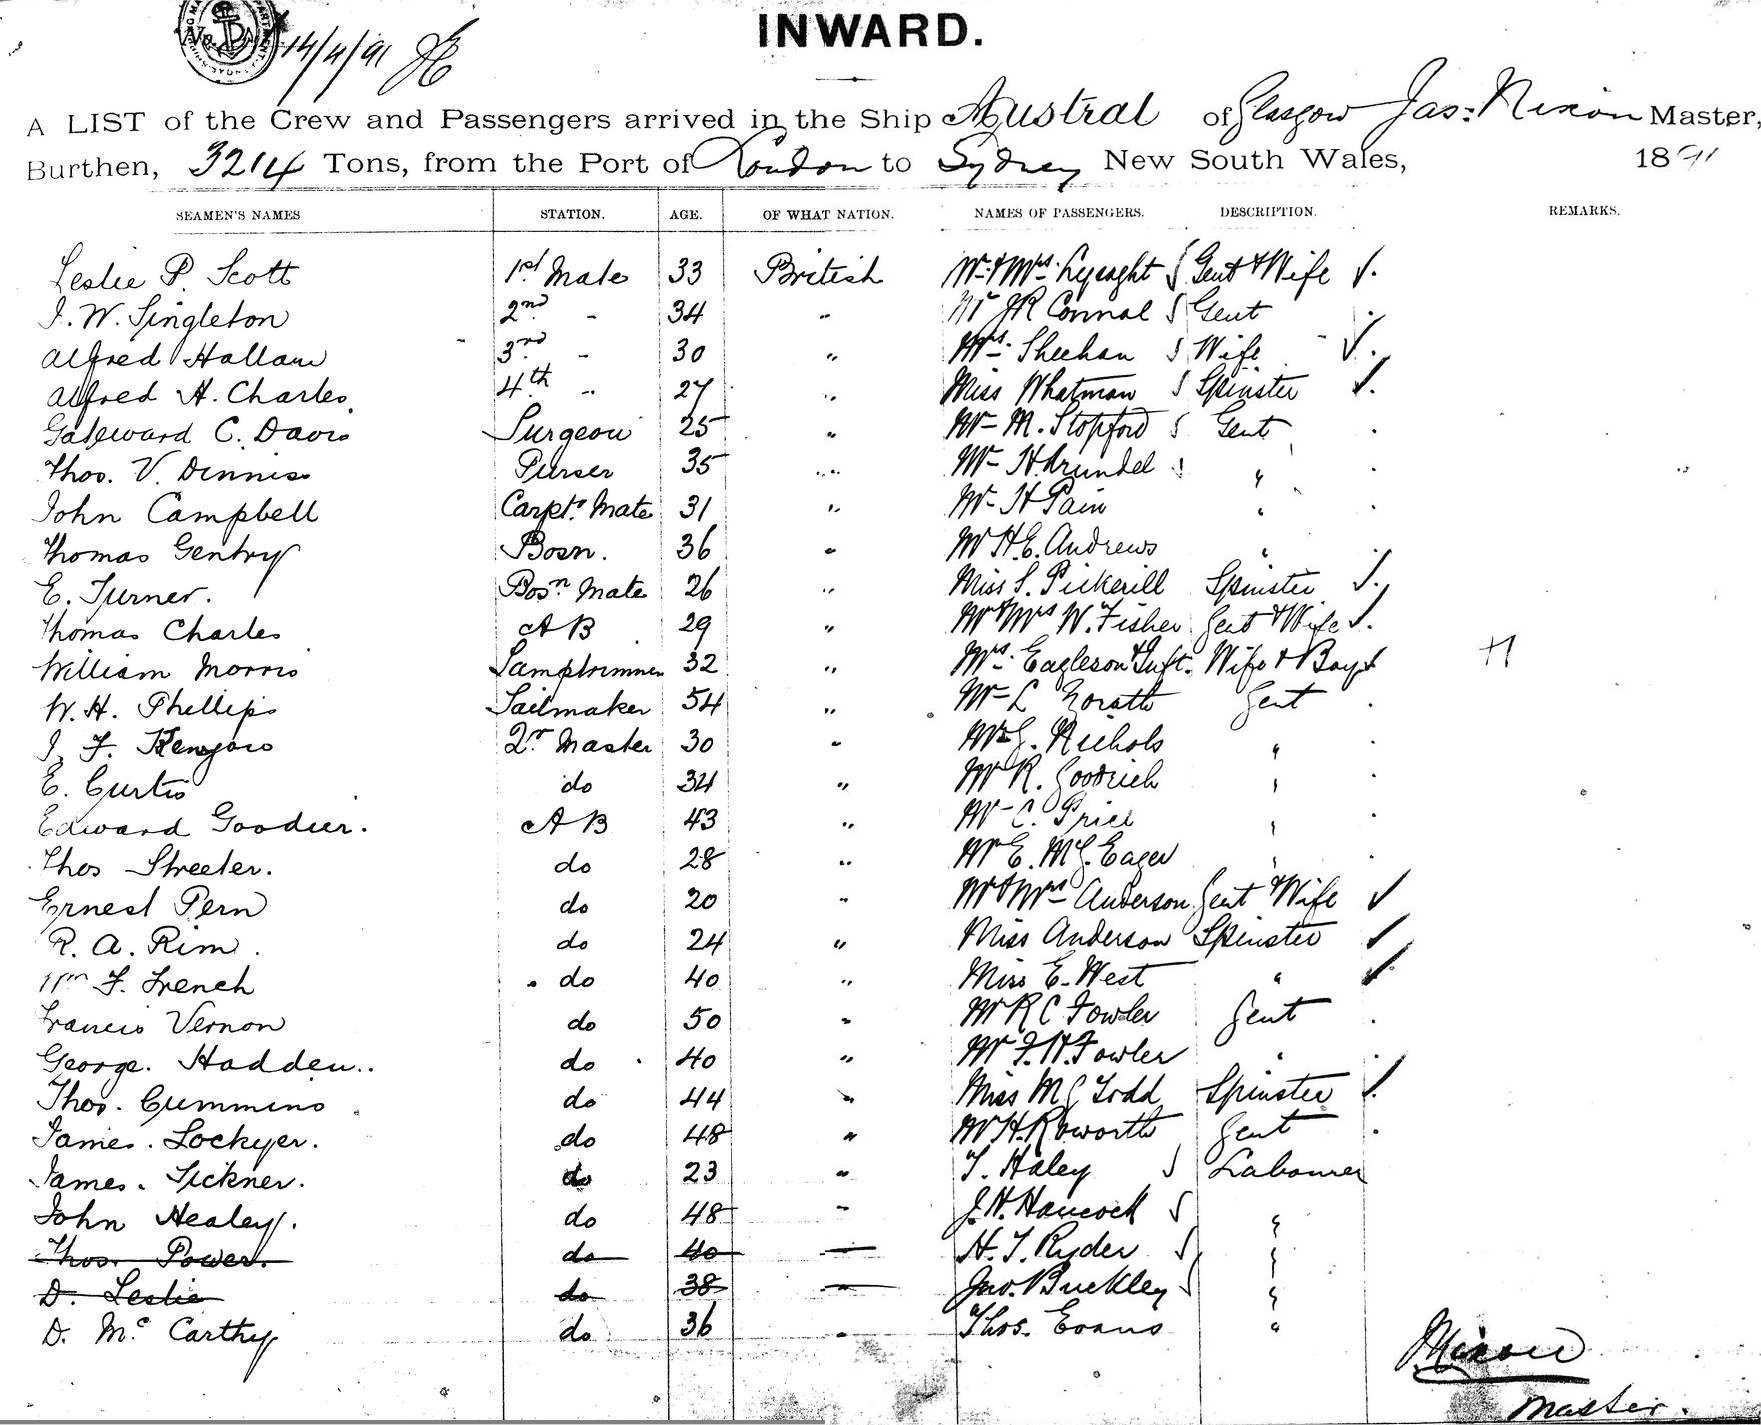 14/4/91
INWARD.
A LIST of the Crew and Passengers arrived in the Ship Austral of Glasgow Jas: Nixon Master,
Burthen, 3214 Tons, from the Port of London to Sydney New South Wales, 1891
SEAMEN'S NAMES STATION. AGE. OF WHAT NATION. NAMES OF PASSENGERS. DESCRIPTION. REMARKS.
Leslie P. Scott 1st Mate 33 British Mr & Mrs Lysaght Gent & Wife
J. W. Singleton 2nd " 34 " Mr JR Connal Gent
Alfred Hallam 3rd " 30 " Mrs. Sheehan Wife
Alfred H. Charles 4th " 27 " Miss Whatman Spinster
C. Davis Surgeon 25 " Mr M. Stopford Gent
Thos. V. Dennis Purser 35 " Mr H Arundel "
John Campbell Carptr Mate 31 " Mr H Pain "
Thomas Gentry Bosn. 36 " Mr H.E. Andrews "
E. Turner. Bosn Mate 26 " Miss S. Pickerill Spinster
Thomas Charles AB 29 " Mr & Mrs W. Fisher Gent & Wife
William Morris Lamptrimmer 32 " Mrs. Eagleson & Inft. Wife & Boy
W. H. Phillips Sailmaker 54 " Mr L Gent
J. F. 2r Master 30 " Mr G. Nichols "
E. Curtis do 34 " Mr R. Goodrich "
Edward Goodier. AB 43 " Mr C. Price "
Thos Streeter. do 28 " Mr E. McG. Eager "
Ernest Pern do 20 " Mr & Mrs Anderson Gent & Wife
R. A. Rim. do 24 " Miss Anderson Spinster
Wm F. French do 40 " Miss E. West "
Francis Vernon do 50 " Mr R C Fowler Gent
George. Hadden.. do 40 " Mr F. H. Fowler "
Thos. Cummins do 44 " Miss M G Todd Spinster
James. Lockyer. do 48 " Mr H. Roworth Gent
James. Tickner. do 23 " T. Haley Labourer
John Healey. do 48 " J. H. Hancock "
Thos. Power. do 40 " H. T. Ryder "
D. Leslie do 38 " Jno. Buckley "
D. Mc Carthy do 36 " Thos. Evans "
JNixon
Master.